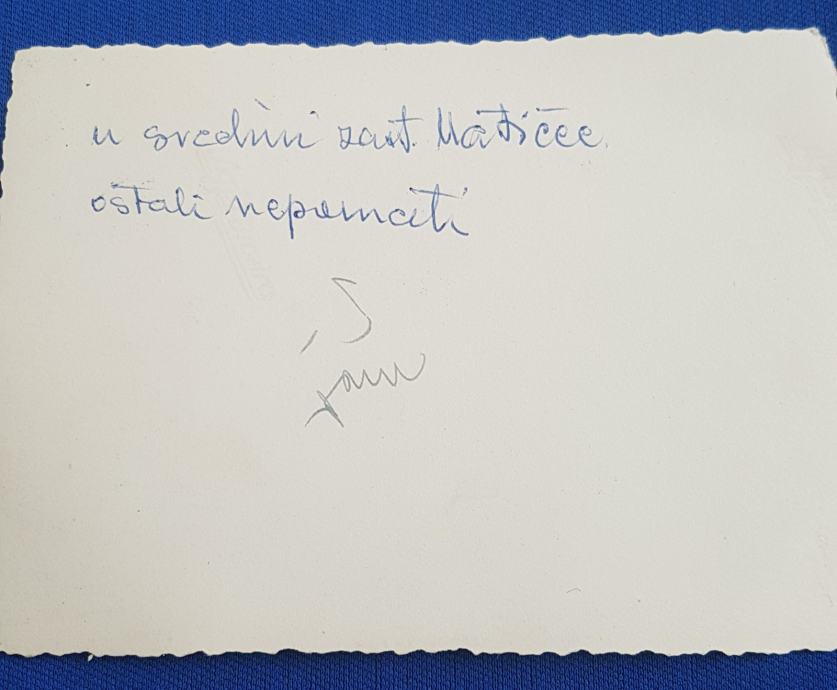 u sredini zast. Matičec.
ostali nepoznati